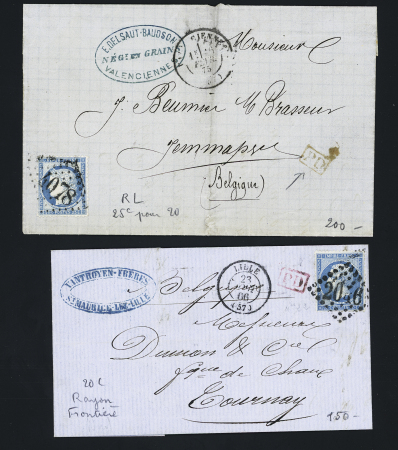 E. DELSAUT-BAUDSON
NÉGt EN GRAINS
VALENCIENNES
Monsieur
J. Beumier Md Brasseur
Jemmapes
PD
(Belgique)
4078
RL
25c pour 20
200-
VANTROYEN-FRÈRES
ST MAURICE-LEZ-LILLE
LILLE
23
66
(57)
PD
2046
Belgique
Messieurs
Dumon & Cie
fque de Chaux
Tournay
20c
Rayon
Frontière
150-